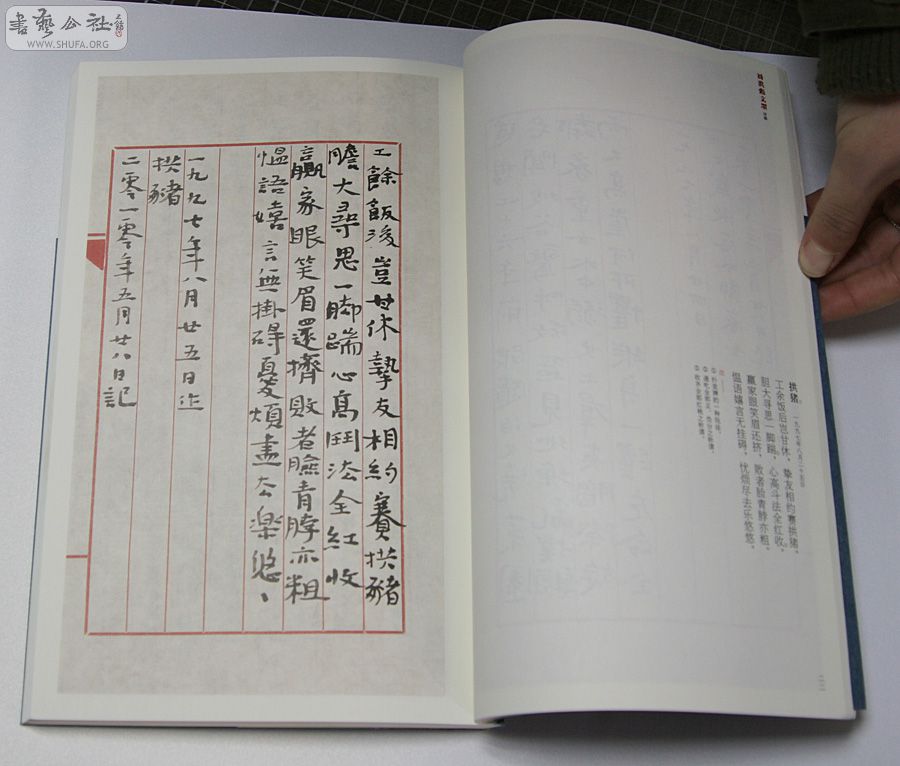 書藝公社
WWW.SHUFA.ORG
工餘飯後豈甘休摯友相約賽拱豬
膽大尋思一腳踹心高鬥法全紅收
贏家眼笑眉還擠敗者臉青脖亦粗
愠語嬉言無掛碍憂煩盡去樂悠、
一九九七年八月廿五日作
拱豬
二零一零年五月廿八日記
拱猪
一九九七年八月二十五日
工余饭后岂甘休，挚友相约赛拱猪。
胆大寻思一脚踹，心高斗法全红收。
赢家眼笑眉还挤，败者脸青脖亦粗。
愠语嬉言无挂碍，忧烦尽去乐悠悠。